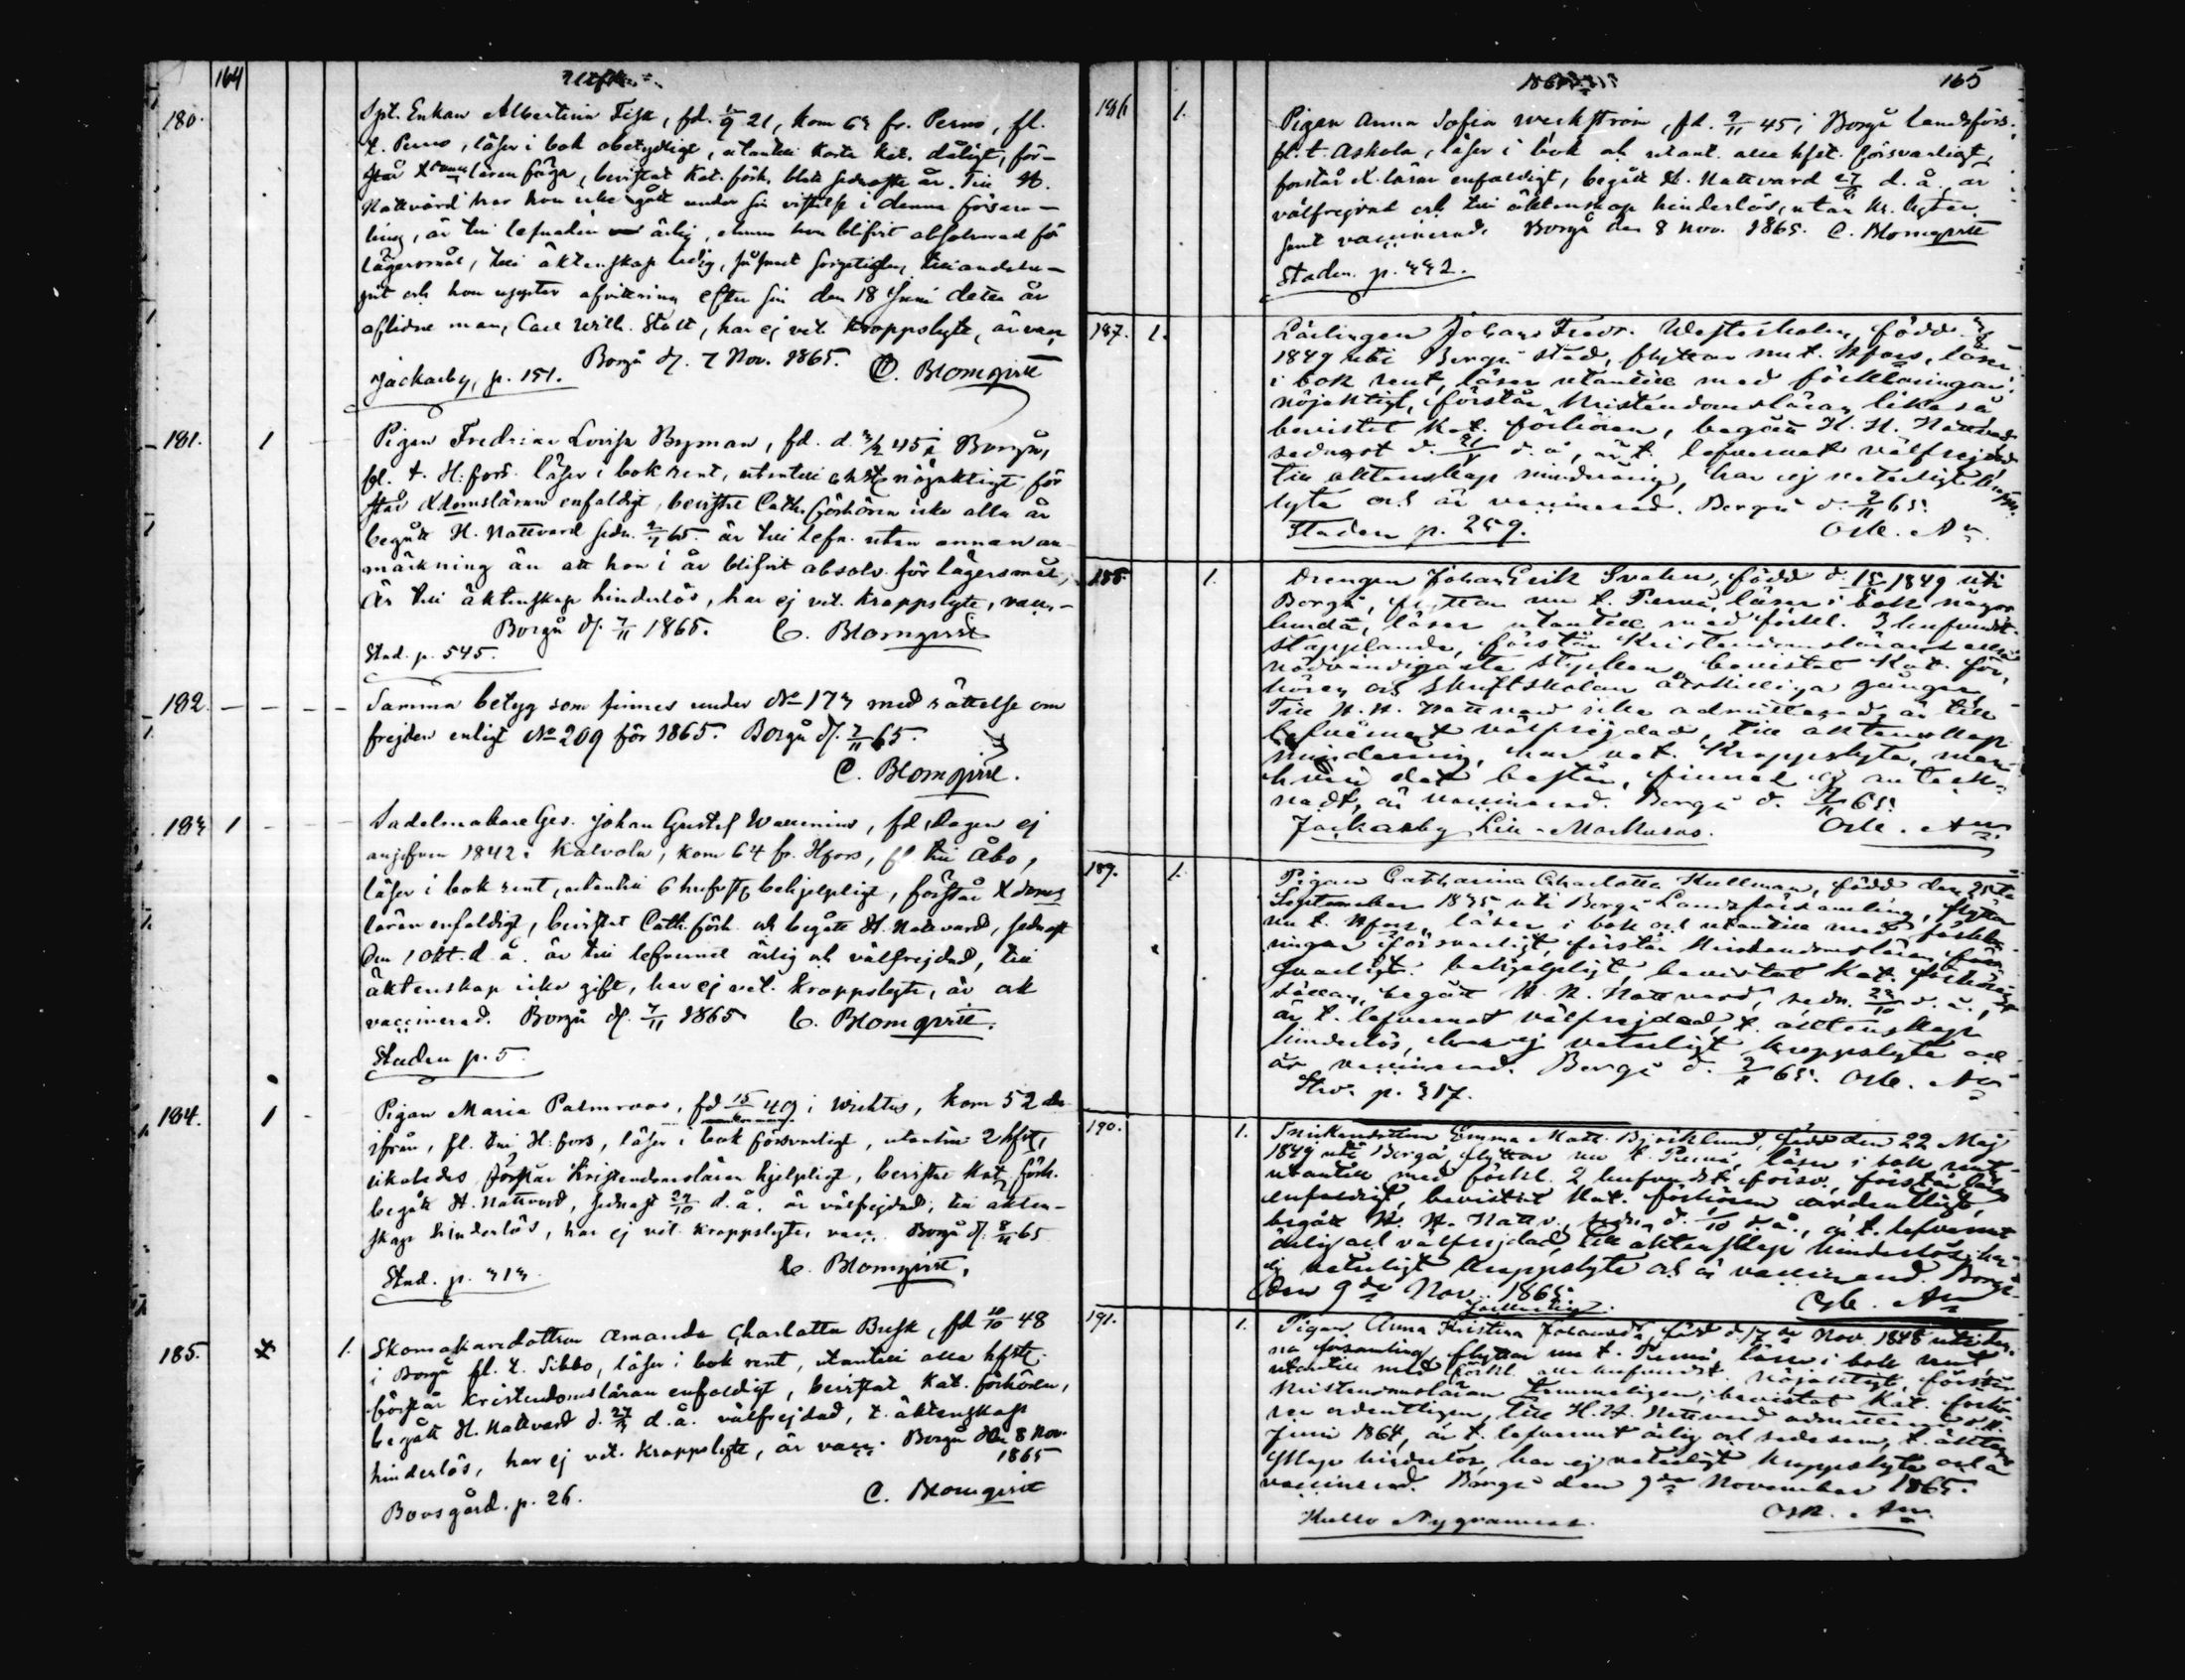 164
180. Spl. Enkan Albertina Fisk, fd. 21, kom 63 fr. Perno, fl.
t. Perno, läser i bok obetydligt, utantill korta Kat. dåligt, för-
står läran föga, bevistat Kat. förh. blott sednaste år. Till H.
Nattvard har hon icke gått under sin vistelse i denna försam-
ling, är till lefnaden ärlig, ehuru hon blifvit absolverad för
lägersmål, till äktenskap ledig, såsnart sorgetiden tilländalu-
pit och hon uppter afvittring efter sin den 18 Juni detta år
aflidne man, Carl Wilh. Stolt, har ej vet. kroppslyte, är vacc.
Jackarby, p. 151. Borgå d. 7 Nov. 1865. C. Blomqvist
181. 1 Pigan Fredrika Lovisa Byman, fd. d. 45 i Borgå,
fl. t. H:fors. läser i bok rent, utantill nöjaktigt, för
står Xdomsläran enfaldigt, bevistat Cath. förhören icke alla år
begått H. Nattvard sedn. 65. är till lefn. utan annan an-
märkning än att hon i år blifvit absolv. för lägersmål,
Är till äktenskap hinderlös, har ej vet. kroppslyte, vacc.
Borgå d. 7/11 1865. C. Blomqvist
Stad. p. 545.
182. Samma betyg som finnes under No 173 med rättelse om
frejden enligt No 209 för 1865. Borgå d. 7/11 65.
C. Blomqvist.
183 1 Sadelmakare Ges. Johan Gustaf Wallenius, fd, dagen ej
angifven 1842 i Kalvola, kom 64 fr. Hfors, fl till Åbo,
läser i bok rent, utantill 6 hufvst. behjelpligt, förstår Xdoms
läran enfaldigt, bevistat Cath. förh. och begått H. Nattvard, sednast
den 1 Okt. d. å. är till lefvernet ärlig och välfrejdad, till
äktenskap icke gift, har ej vet. kroppslyte, är ock
vaccinerad. Borgå d. 7/11 1865 C. Blomqvist.
Staden p. 5.
184. 1 Pigan Maria Palmroos, fd 15 49 i Wichtis, kom 52 der
ifrån, fl. till H:fors, läser i bok försvarligt, utantill 2 hfst,
likaledes förstår Kristendomsläran hjelpligt, bevistat Kat. förh.
begått H. Nattvard, sednast 29/10 d. å. är välfrejdad, till äkten-
skap hinderlös, har ej vet. kroppslyte, vacc. Borgå d. 8/11 65
Stad. p. 313. C. Blomqvist.
185. 1. Skomakaredottren Amanda Charlotta Busk, fd 10/10 48
i Borgå fl. t. Sibbo, läser i bok rent, utantill alla hfst.
förstår Kristendomsläran enfaldigt, bevistat Kat. förhören,
begått H. Nattvard d. 27 d. å. välfrejdad, t. äktenskap
hinderlös, har ej vet. kroppslyte, är vacc. Borgå den 8 Nov.
1865
Boosgård. p. 26. C. Blomqvist
165
186 1. Pigan Anna Sofia Werkström, fd. 9/11 45 i Borgå landsförs.
fl. t. Askola, läser i bok och utant. alla hfst. försvarligt,
förstår X. läran enfaldigt, begått H. Nattvard 27 d. å., är
välfrejdad och till äktenskap hinderlös, utan kr. lyten
samt vaccinerad. Borgå den 8 Nov. 1865. C. Blomqvist
Staden. p. 332.
187. 1. Lärlingen Johan Fredr. Westerholm, född
1849 uti Borgå stad, flyttar nu t. Hfors, läser
i bok rent, läser utantill med förklaringar
nöjaktigt, förstår Kristendomsläran likaså
bevistat Kat. förhören, begått H. H. Nattvard
sednast d. 21 d. å, är t. lefvernet välfrejdad
till äktenskap minderårig, har ej veterligt kropps-
lyte och är vaccinerad. Borgå d. 9/11 65.
Staden p. 259. Osk. An
188. 1. Drengen Johan Erik Svahn, född d. 15 1849 uti
Borgå, flyttar nu t. Pernå, läser i bok någor
lunda, läser utantill med förkl. 3 hufvudst.
stapplande, förstår Kristendomslärans allra
nödvändigaste stycken, bevistat Kat. för-
hören och skriftskolan åtskilliga gånger,
Till H. H. Nattvard icke admitterad, är till
lefvernet välfrejdad, till äktenskap
minderårig, har vet. kroppslyte, men
hvari det består, finnes ej anteck-
nadt, är vaccinerad. Borgå d. 9/11 65.
Jackarby Lill-Markuras. Osk. An
189. 1. Pigan Catharina Charlotta Kullman, född den 25te
September 1835 uti Borgå Landsförsamling, flyttar
nu t. Hfors, läser i bok och utantill med förkla-
ringar försvarligt, förstår Kristendomsläran
behjelpligt, bevistat Kat. förhören
sällan, begått H. H. Nattvard, sedn. 29/10 d. å.,
är t. lefvernet välfrejdad, t. äktenskap
hinderlös, har ej veterligt kroppslyte och
är vaccinerad. Borgå d. 9/11 65. Osk. An
p. 317.
190. 1. Snickaredottren Emma Math. Björklund, född den 22 Maj
1849 uti Borgå, flyttar nu t. Pernå, läser i bok rent
utantill med förkl. 2 hufvudst. försv., förstår
enfaldigt, bevistat Kat. förhören ordentligt,
begått H. H. Nattv., sedn. d. 1/10 d. å., är t. lefvernet
ärlig och välfrejdad, till äktenskap hinderlös, har
ej veterligt kroppslyte och är vaccinerad. Borgå
den 9de Nov. 1865. Osk. An
191. 1. Pigan Anna Kristina Johansdr, född d. 17de Nov. 1848 uti den-
na församling, flyttar nu t. Pernå, läser i bok rent,
utantill med förkl. alla hufvudst. nöjaktigt, förstår
Kristendomsläran temmeligen, bevistat Kat. förhö-
ren ordentligen, till H. H. Nattvard admitterad
Juni 1864, är t. lefvernet ärlig och sedesam, t. äkten-
skap hinderlös, har ej veterligt kroppslyte och är
vaccinerad. Borgå den 9de November 1865.
Kullo Nygrannas. Osk. An.